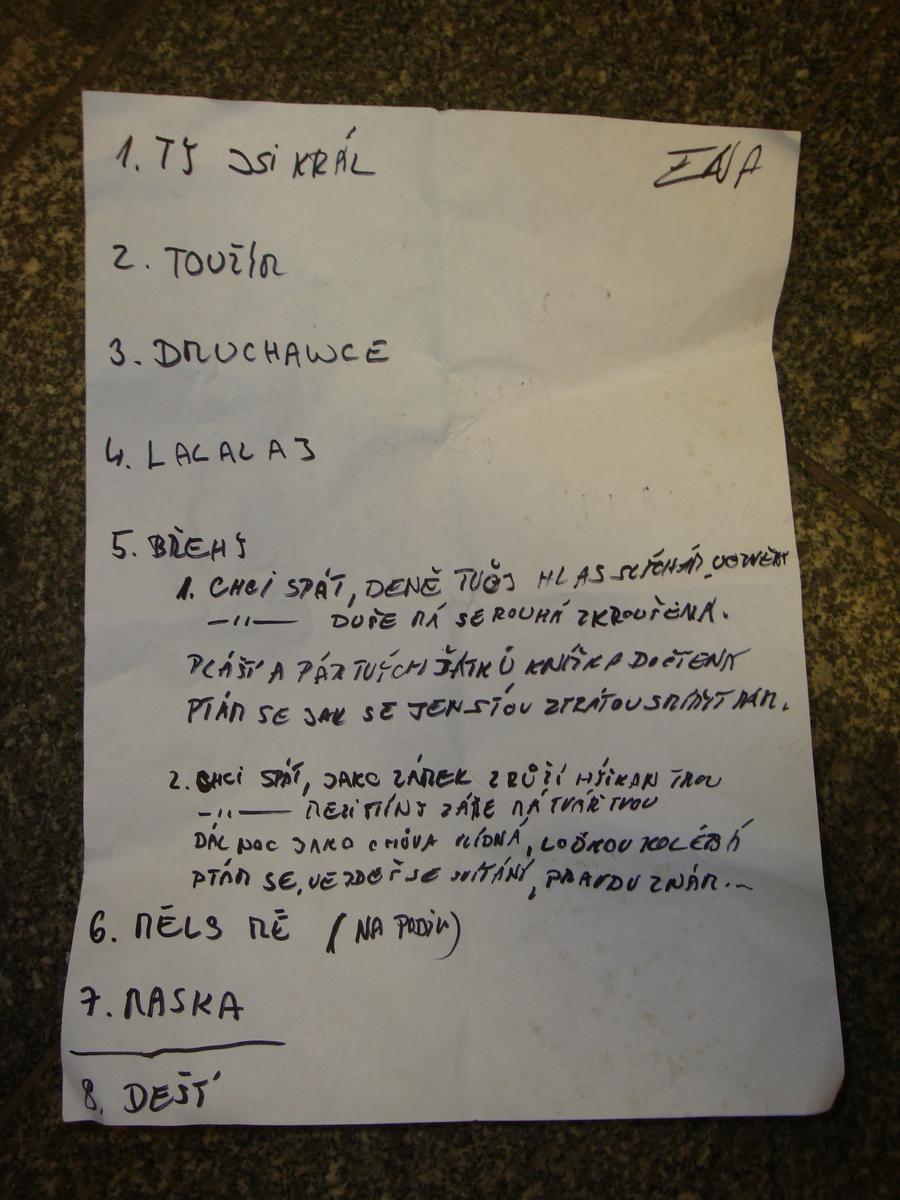 1. TY JSI KRÁL
ENA
2. TOUŽÍM
3. DMUCHAWCE
4. LALALAJ
5. BŘEHY
1. CHCI SPÁT, DENĚ TVŮJ HLAS SLÝCHÁM
-"- DUŠE MÁ SE ROUHÁ ZKROUŠENÁ.
PLÁŠŤ A PÁR TVÝCH ŠÁTKŮ KNÍŽKA DOČTENÁ
PTÁM SE JAK SE JEN S TOU ZTRÁTOU SMÍŘIT MÁM.
2. CHCI SPÁT, JAKO ZÁMEK Z RŮŽÍ HÝČKAN TMOU
-"- MEZI STÍNY ZÁŘE MÁ TVÁŘ TVOU
DÁL NOC JAKO CHŮVA VLÍDNÁ, LOĎKOU KOLÉBÁ
PTÁM SE, SVÍTÁNÍ, PRAVDU ZNÁM...
6. MĚLS MĚ (NA PODIU)
7. MASKA
8. DÉŠŤ